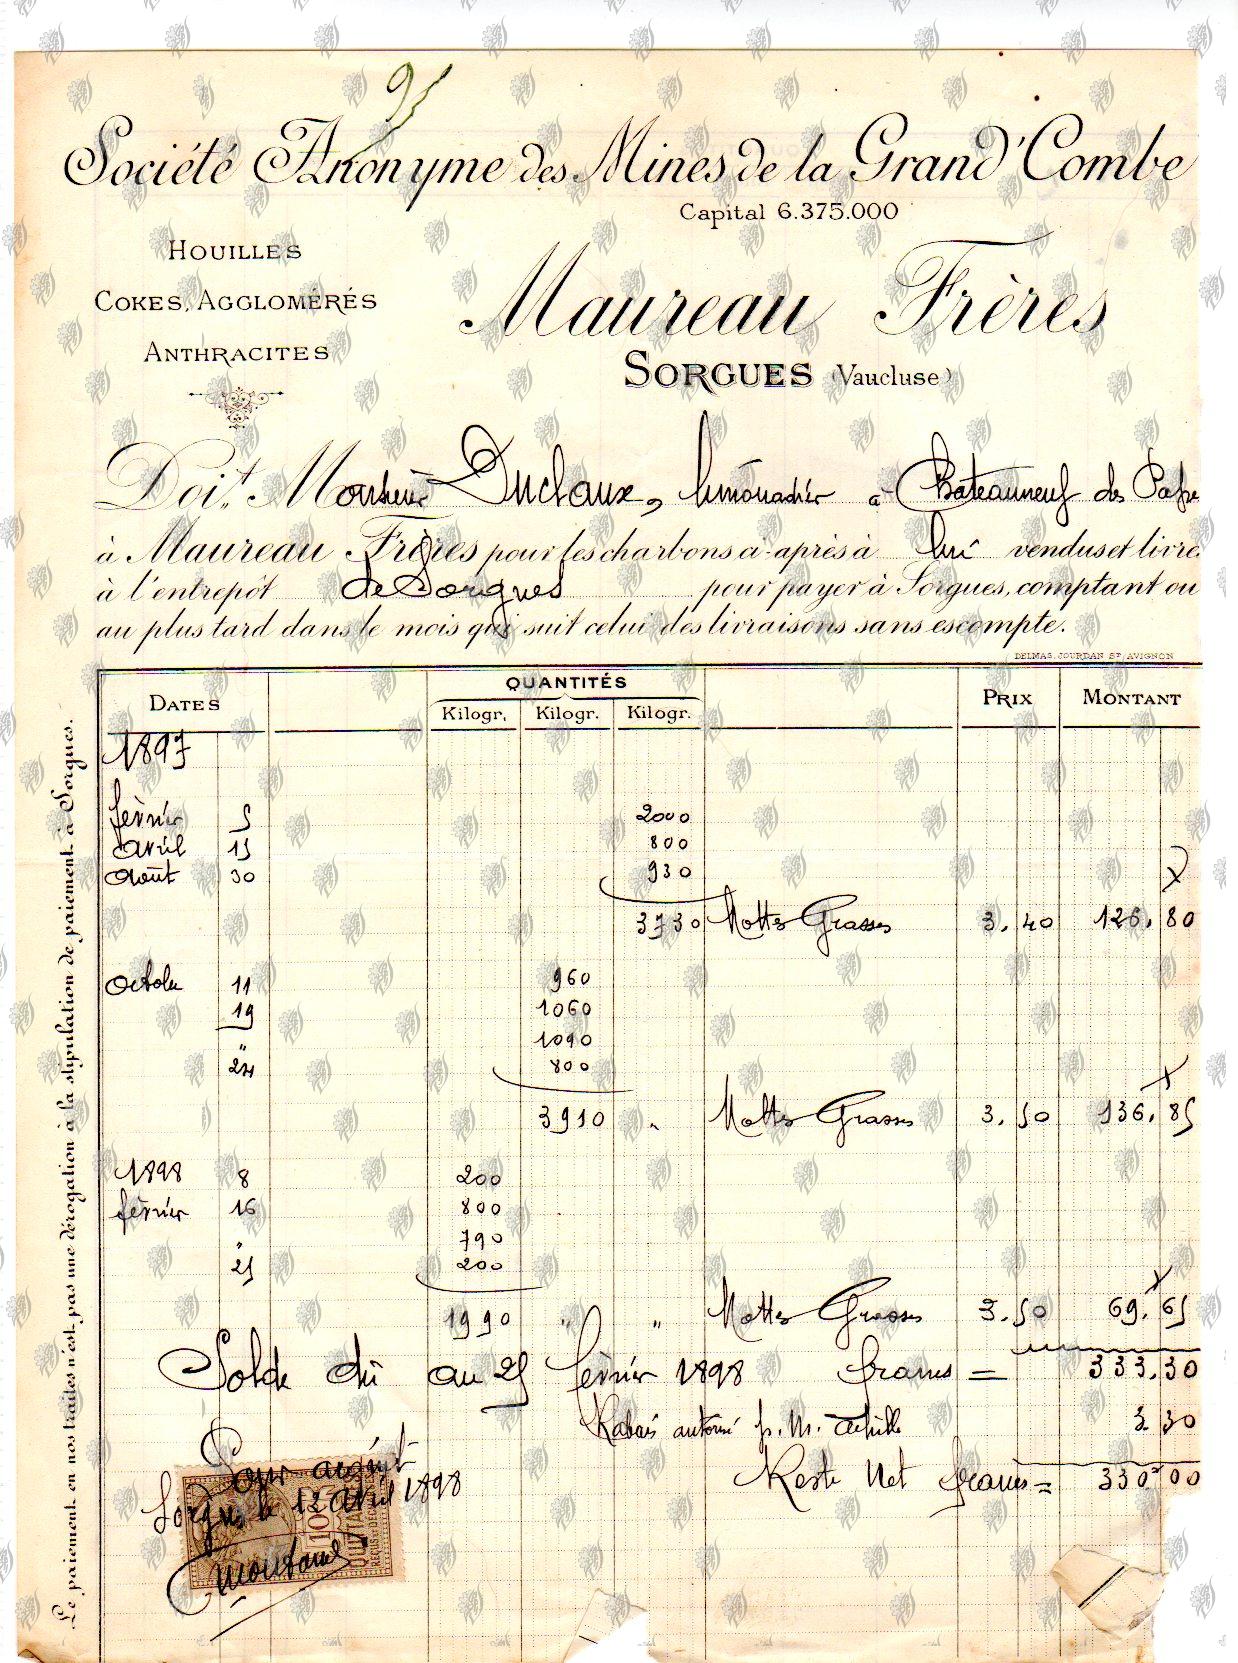 95
Société Anonyme des Mines de la Grand'Combe
Capital 6.375.000
HOUILLES
COKES, AGGLOMÉRÉS
ANTHRACITES
Maureau Frères
SORGUES (Vaucluse)
Doit Monsieur Duclaux, limonadier à Chateauneuf des Pape
à Maureau Frères pour les charbons ci-après à lui vendus et livre
à l'entrepôt de Sorgues pour payer à Sorgues, comptant ou
au plus tard dans le mois qui suit celui des livraisons sans escompte.
DELMAS. JOURDAN Sr AVIGNON
DATES QUANTITÉS PRIX MONTANT
Kilogr. Kilogr. Kilogr.
1897
février 5 2000
avril 15 800
Août 30 930
3730 Mottes Grasses 3.40 126.80
Octobre 11 960
19 1060
" 1090
24 800
3910 " Mottes Grasses 3.50 136.85
1898 8 200
février 16 800
" 790
25 200
1990 " " Mottes Grasses 3.50 69.65
Solde dû au 25 février 1898 francs = 333.30
Rabais autorisé p. M. Achille 3.30
Reste Net francs = 330.00
Pour acquit
Sorgues le 12 avril 1898
10
QUITTANCES
REÇUS ET DÉCHARGES
Le paiement en nos traites n'est pas une dérogation à la stipulation de paiement à Sorgues.